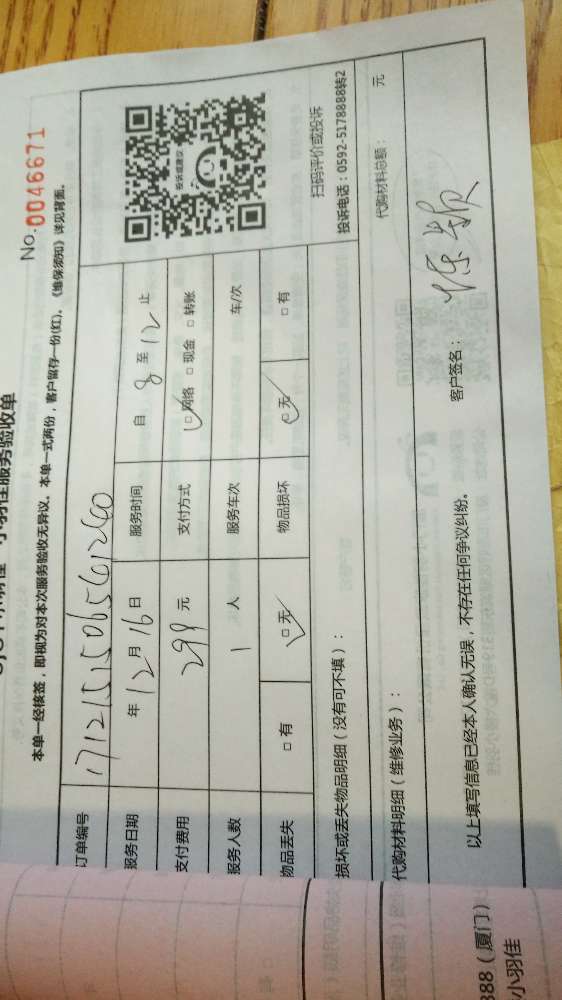 小羽佳服务验收单
No.0046671
本单一经核签，即视为对本次服务验收无异议。本单一式两份，客户留存一份(红)。《维保须知》详见背面。
订单编号 171215150656561240
服务日期 年12月16日 服务时间 自8至12止
支付费用 299元 支付方式 □网络 □现金 □转账
服务人数 1人 服务车次 车/次
物品丢失 □有 □无 物品损坏 □无 □有
投诉或建议
扫码评价或投诉
投诉电话：0592-5178888转2
损坏或丢失物品明细（没有可不填）：
代购材料明细（维修业务）： 代购材料总额： 元
以上填写信息已经本人确认无误，不存在任何争议纠纷。 客户签名：
88（厦门）
小羽佳